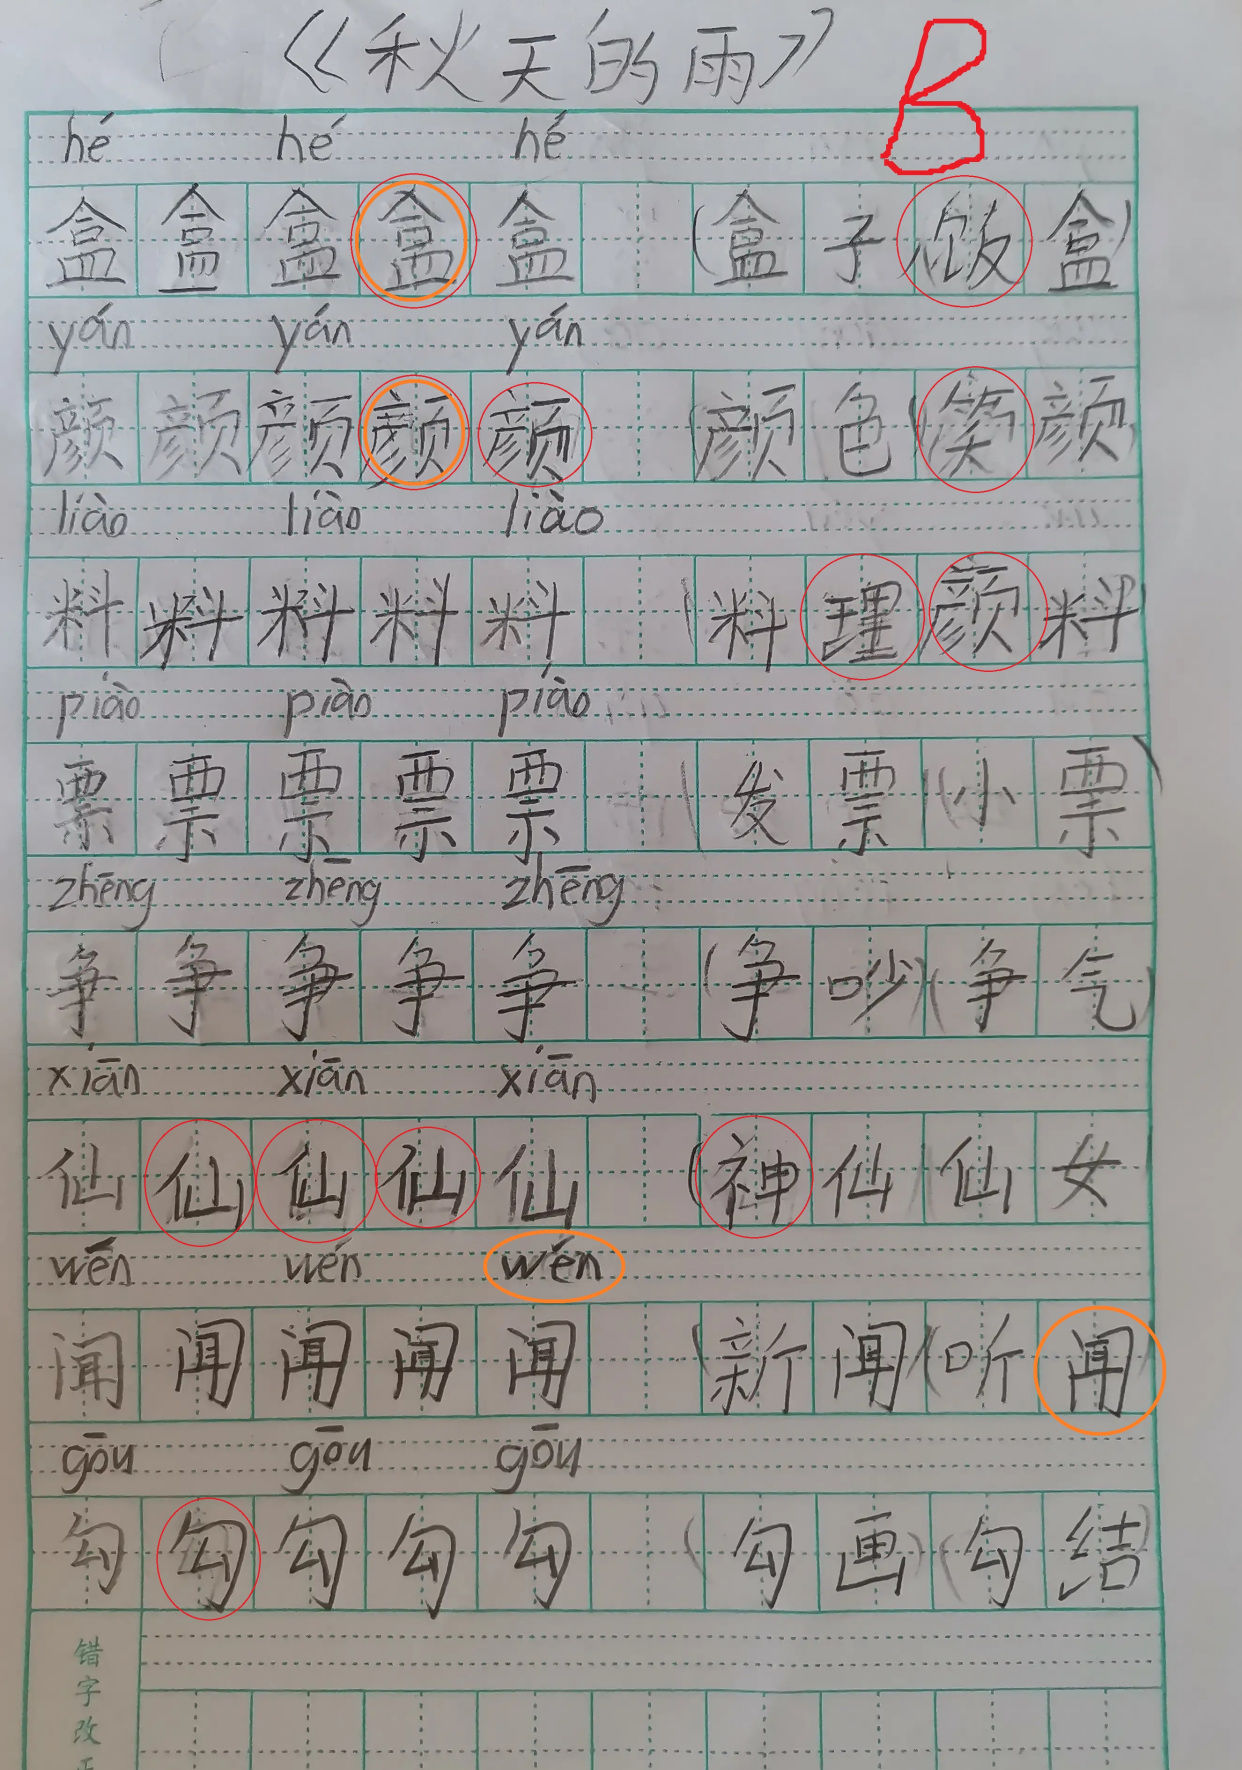 《秋天的雨》
B
hé hé hé
盒盒盒盒盒(盒子饭盒)
yán yán yán
颜颜颜颜颜(颜色(笑颜)
liào liào liào
料料料料料(料理颜料)
piào piào piào
票票票票票(发票(小票)
zhēng zhēng zhēng
争争争争争(争吵)(争气)
xiān xiān xiān
仙仙仙仙仙(神仙仙女
wēn wén wén
闻闻闻闻闻(新闻)(听闻)
gōu gōu gōu
勾勾勾勾勾(勾画)(勾结)
错字改